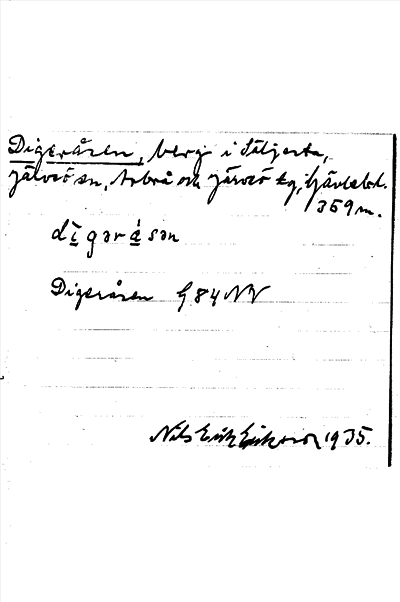 Digeråsen, berg i Säljesta,
Järvsö sn, Arbrå och Järvsö tg, Gävlebol.
359 m.
dìgəråsən
Digeråsen G84NV
Nils Erik Eriksson 1935.